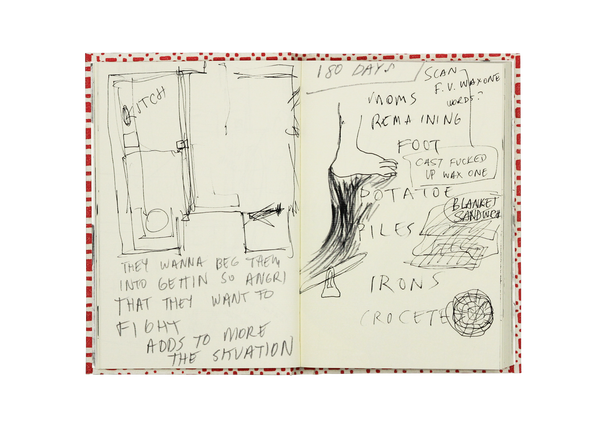 KITCH
THEY WANNA BEG THEM
INTO GETTIN SO ANGRI
THAT THEY WANT TO
FIGHT
ADDS TO MORE
THE SITUATION
180 DAYS
SCAN
F.V. WAX ONE
WORDS?
MOMS
REMAINING
FOOT
CAST FUCKED
UP WAX ONE
POTATOE
BLANKET
SANDWICH
PILES
IRONS
CROCETE